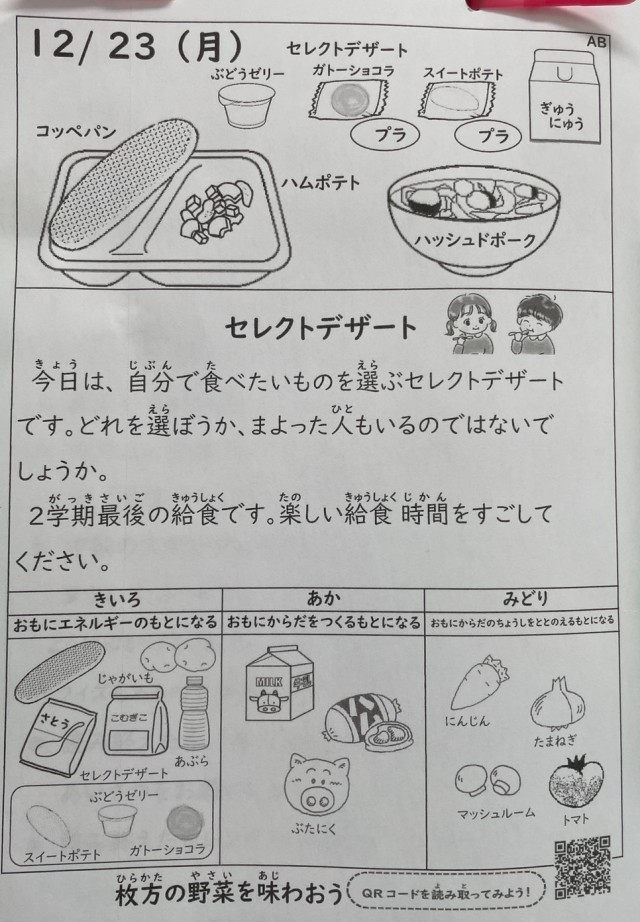 12/23（月）
AB
セレクトデザート
ぶどうゼリー
ガトーショコラ
スイートポテト
プラ
プラ
ぎゅう
にゅう
コッペパン
ハムポテト
ハッシュドポーク
セレクトデザート
今日は、自分で食べたいものを選ぶセレクトデザート
です。どれを選ぼうか、まよった人もいるのではないで
しょうか。
2学期最後の給食です。楽しい給食時間をすごして
ください。
きいろ
あか
みどり
おもにエネルギーのもとになる
おもにからだをつくるもとになる
おもにからだのちょうしをととのえるもとになる
じゃがいも
さとう
こむぎこ
あぶら
セレクトデザート
ぶどうゼリー
スイートポテト
ガトーショコラ
MILK
ぶたにく
にんじん
たまねぎ
マッシュルーム
トマト
枚方の野菜を味わおう
QRコードを読み取ってみよう!